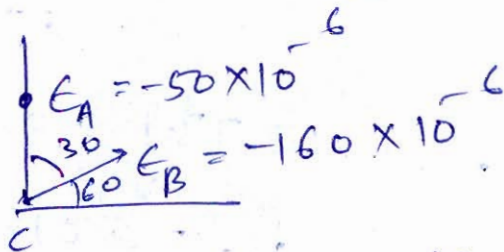 ϵ_A = -50 × 10^-6
30
ϵ_B = -160 × 10^-6
60
C